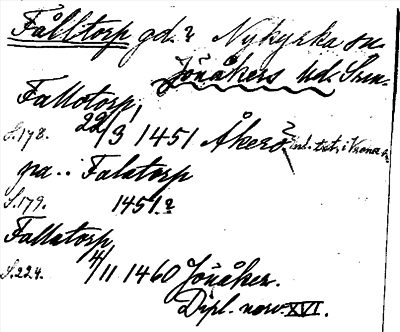 Fålltorp gd.? Nykyrka sn.
Jönåkers hd. Srm.
Fallotorp,
S. 178. 22/3 1451 Åkerö?
pa.. Falatorp
S. 179. 1451?
Fallatorp
S. 224. 4/11 1460 Jönåker.
Dipl. nov. XVI.